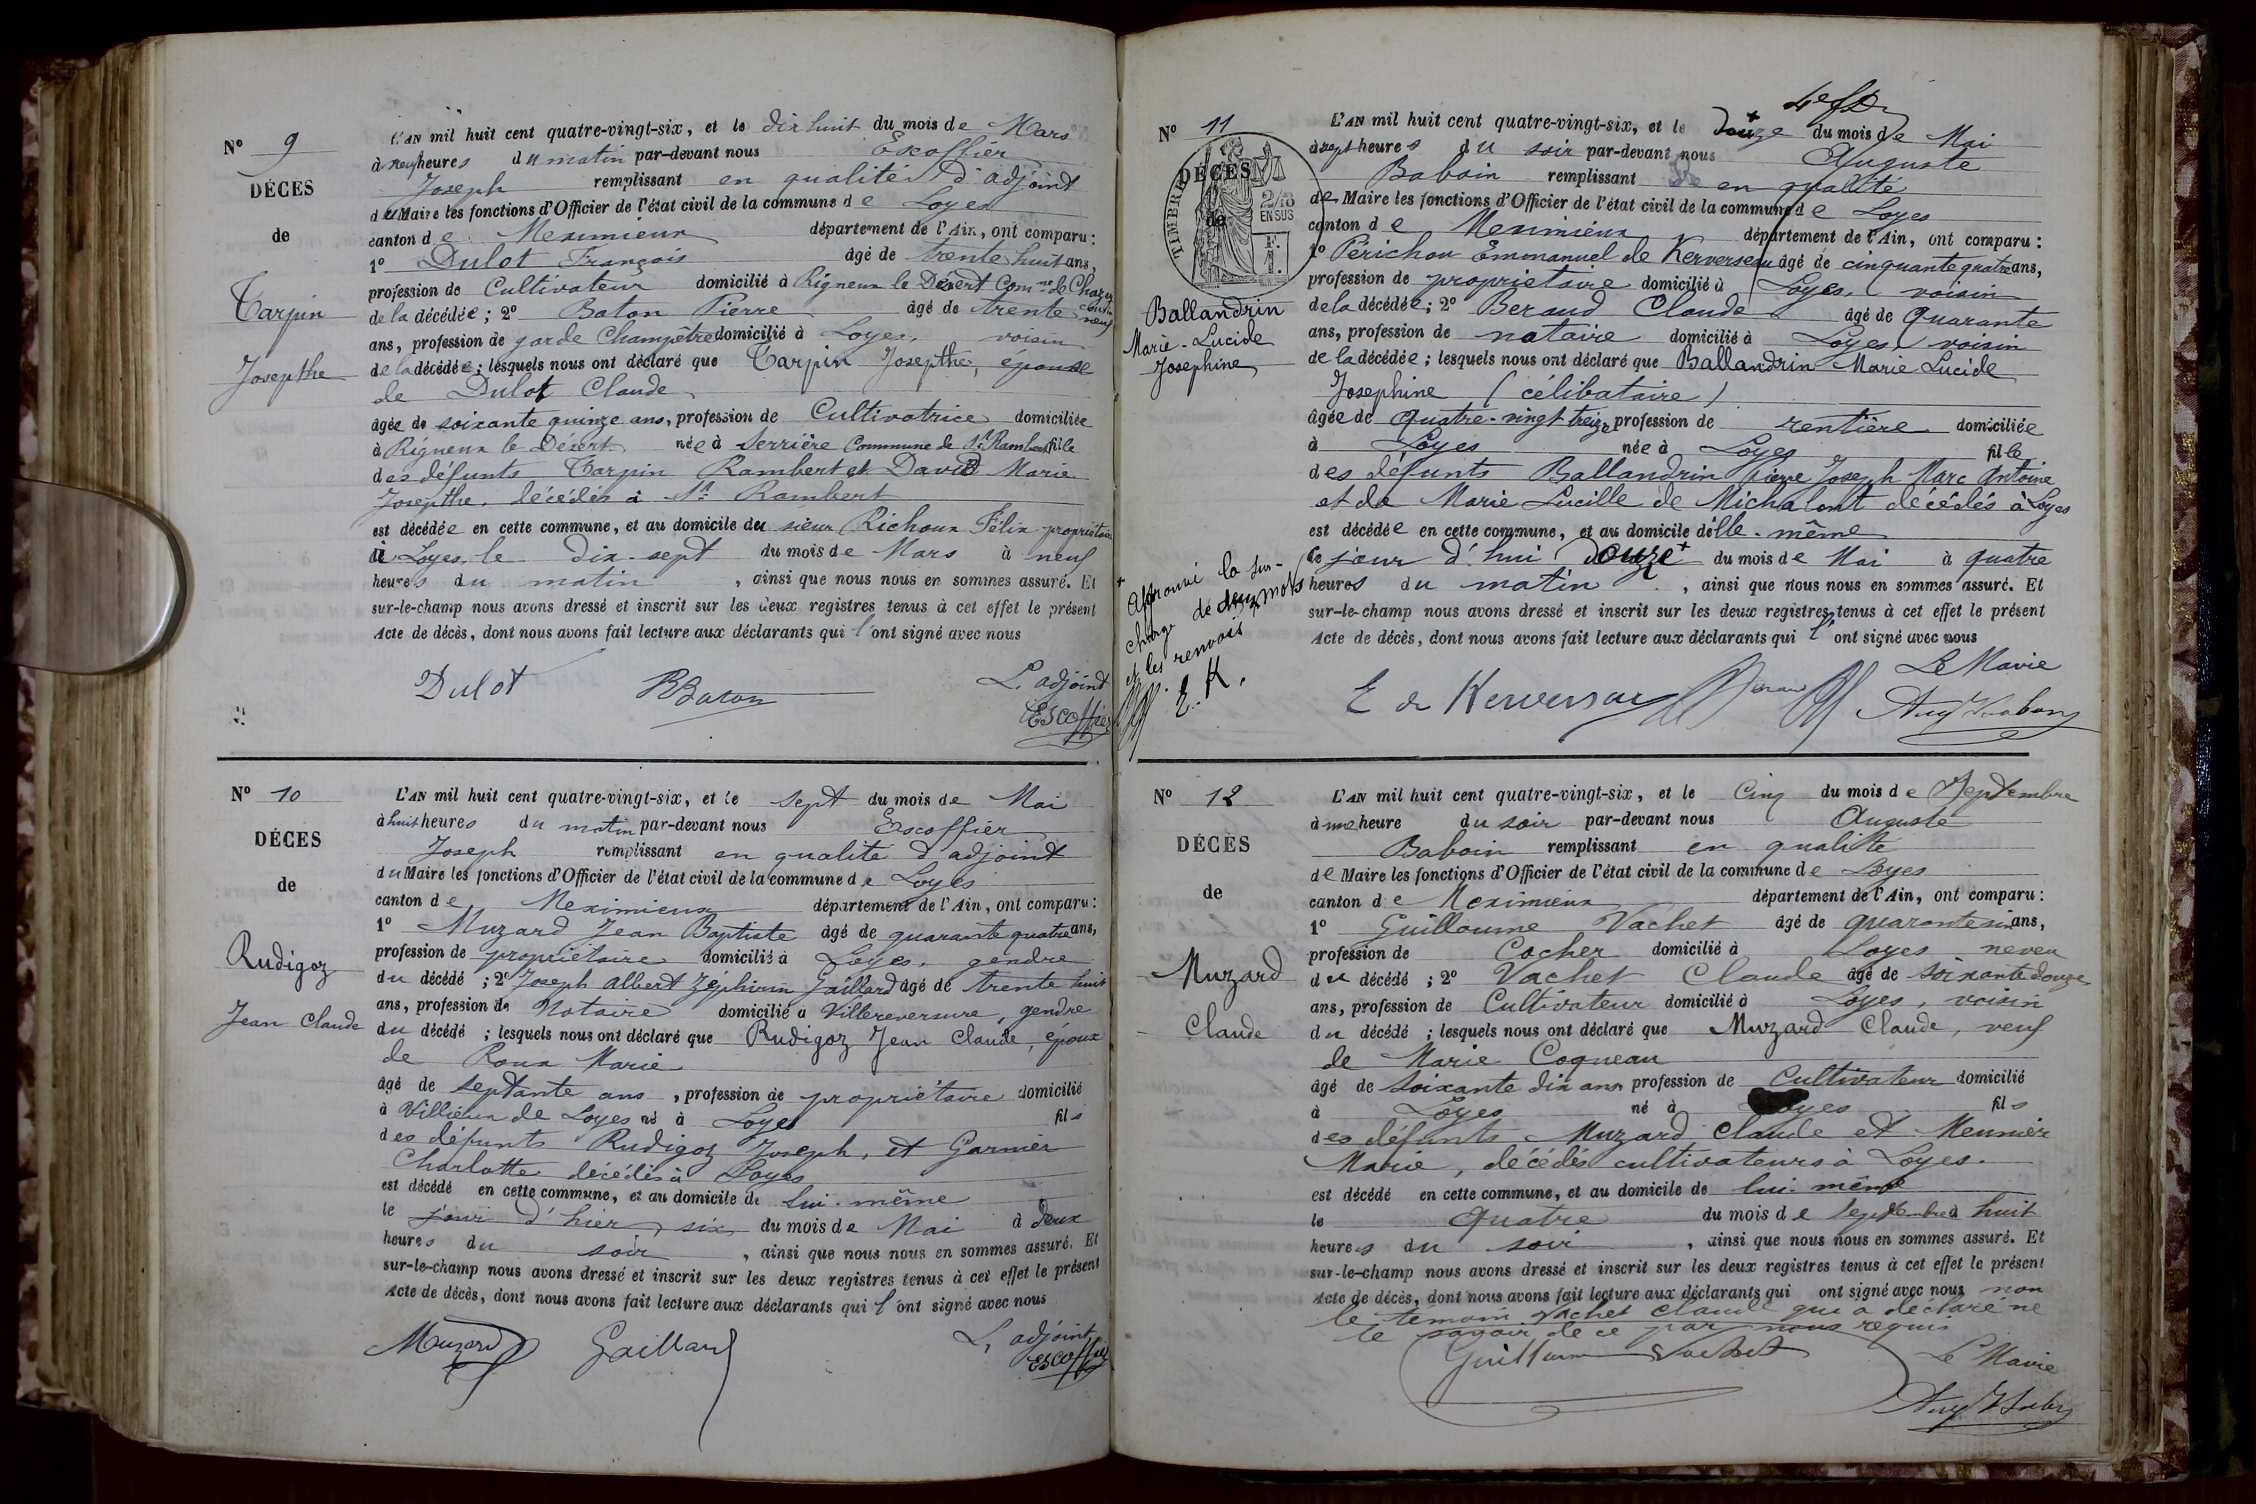 N° 9
DÉCES
de
Tarpin
Josepthe
L'AN mil huit cent quatre-vingt-six, et le dix huit du mois de Mars
à neuf heures du matin par-devant nous Escoffier
Joseph remplissant en qualité d'adjoint
du Maire les fonctions d'Officier de l'état civil de la commune de Loyes
canton de Meximieux département de l'Ain, ont comparu :
1° Dulot François âgé de trente huit ans,
profession de Cultivateur domicilié à Rigneux le Désert Com ne de Chazey cousin
de la décédée ; 2° Baton Pierre âgé de trente neuf
ans, profession de garde Champêtre domicilié à Loyes, voisin
de la décédée ; lesquels nous ont déclaré que Tarpin Josepthe, épouse
de Dulot Claude
âgée de soixante quinze ans, profession de Cultivatrice domiciliée
à Rigneux le Désert née à Serrière Commune de St Rambert fille
des défunts Tarpin Rambert et David Marie
Josepthe, décédés à St Rambert
est décédée en cette commune, et au domicile du sieur Richoux Félix propriétaire
à Loyes, le dix-sept du mois de Mars à neuf
heures du matin, ainsi que nous nous en sommes assuré. Et
sur-le-champ nous avons dressé et inscrit sur les deux registres tenus à cet effet le présent
Acte de décès, dont nous avons fait lecture aux déclarants qui l'ont signé avec nous
Dulot Baton L'adjoint
Escoffier
N° 10
DÉCES
de
Rudigoz
Jean Claude
L'AN mil huit cent quatre-vingt-six, et le sept du mois de Mai
à huit heures du matin par-devant nous Escoffier
Joseph remplissant en qualité d'adjoint
du Maire les fonctions d'Officier de l'état civil de la commune de Loyes
canton de Meximieux département de l'Ain, ont comparu :
1° Muzard Jean Baptiste âgé de quarante quatre ans,
profession de propriétaire domicilié à Loyes, gendre
du décédé ; 2° Joseph Albert Zéphirin Gaillard âgé de trente huit
ans, profession de Notaire domicilié à Villereversure, gendre
du décédé ; lesquels nous ont déclaré que Rudigoz Jean Claude, époux
de Roux Marie
âgé de septante ans, profession de propriétaire domicilié
à Villieux de Loyes né à Loyes fils
des défunts Rudigoz Joseph, et Garnier
Charlotte décédés à Loyes
est décédé en cette commune, et au domicile de lui-même
le jour d'hier, six du mois de Mai à deux
heures du soir, ainsi que nous nous en sommes assuré. Et
sur-le-champ nous avons dressé et inscrit sur les deux registres tenus à cet effet le présent
Acte de décès, dont nous avons fait lecture aux déclarants qui l'ont signé avec nous
Muzard Gaillard L'adjoint
Escoffier
N° 11
DÉCÈS
de
TIMBRE
2/10
EN SUS
Ballandrin
Marie-Lucide
Josephine
L'AN mil huit cent quatre-vingt-six, et le douze du mois de Mai
à sept heures du soir par-devant nous Auguste
Baboin remplissant en qualité
de Maire les fonctions d'Officier de l'état civil de la commune de Loyes
canton de Meximieux département de l'Ain, ont comparu :
1° Périchou Emmanuel de Kerverseau âgé de cinquante quatre ans,
profession de propriétaire domicilié à Loyes, voisin
de la décédée ; 2° Beraud Claude âgé de quarante
ans, profession de notaire domicilié à Loyes, voisin
de la décédée ; lesquels nous ont déclaré que Ballandrin Marie Lucide
Josephine (célibataire)
âgée de quatre-vingt treize profession de rentière domiciliée
à Loyes née à Loyes fille
des défunts Ballandrin Pierre Joseph Marc Antoine
et de Marie Lucille de Michalont décédés à Loyes
est décédée en cette commune, et au domicile d'elle-même
ce jour d'hui douze + du mois de Mai à quatre
heures du matin, ainsi que nous nous en sommes assuré. Et
sur-le-champ nous avons dressé et inscrit sur les deux registres tenus à cet effet le présent
Acte de décès, dont nous avons fait lecture aux déclarants qui l'ont signé avec nous
+ Approuvé la sur-
charge de deux mots
et les renvois
E. K.
E de Kerverseau Beraud Le Maire
N° 12
DÉCÈS
de
Muzard
Claude
L'AN mil huit cent quatre-vingt-six, et le Cinq du mois de Septembre
à une heure du soir par-devant nous Auguste
Baboin remplissant en qualité
de Maire les fonctions d'Officier de l'état civil de la commune de Loyes
canton de Meximieux département de l'Ain, ont comparu :
1° Guillaume Vachet âgé de quarante six ans,
profession de Cocher domicilié à Loyes neveu
du décédé ; 2° Vachet Claude âgé de soixante douze
ans, profession de Cultivateur domicilié à Loyes, voisin
du décédé ; lesquels nous ont déclaré que Muzard Claude, veuf
de Marie Coqueau
âgé de soixante dix ans profession de Cultivateur domicilié
à Loyes né à Loyes fils
des défunts Muzard Claude et Meunier
Marie, décédés cultivateurs à Loyes.
est décédé en cette commune, et au domicile de lui-même
le quatre du mois de Septembre à huit
heures du soir, ainsi que nous nous en sommes assuré. Et
sur-le-champ nous avons dressé et inscrit sur les deux registres tenus à cet effet le présent
Acte de décès, dont nous avons fait lecture aux déclarants qui ont signé avec nous non
le témoin Vachet Claude qui a déclaré ne
le savoir de ce par nous requis
Guillaume Vachet Le Maire